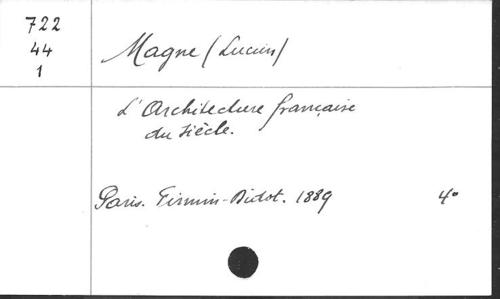 722
44
1
Magne (Lucien)
L'Architecture française
du siècle.
Paris. Firmin-Didot. 1889 4°